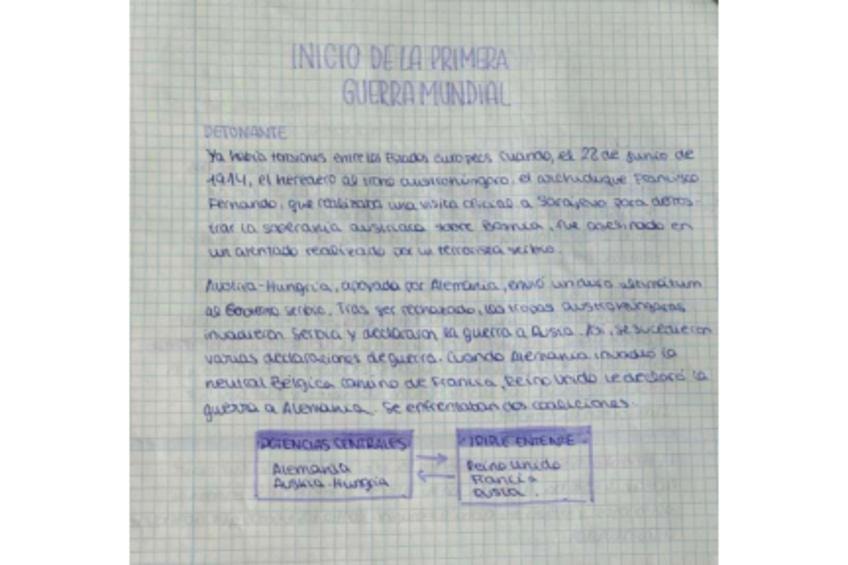 INICIO DE LA PRIMERA
GUERRA MUNDIAL
DETONANTE
Ya había tensiones entre los Estados europeos cuando, el 28 de junio de
1914, el heredero al trono austrohúngaro, el archiduque Francisco
Fernando, que realizaba una visita oficial a Sarajevo para demos-
trar la soberanía austriaca sobre Bosnia, fue asesinado en
un atentado realizado por un terrorista serbio.
Austria-Hungría, apoyada por Alemania, envió un duro ultimátum
al Gobierno serbio. Tras ser rechazado, las tropas austrohúngaras
invadieron Serbia y declararon la guerra a Rusia. Así, se sucedieron
varias declaraciones de guerra. Cuando Alemania invadió la
neutral Bélgica camino de Francia, Reino Unido le declaró la
guerra a Alemania. Se enfrentaban dos coaliciones.
POTENCIAS CENTRALES
Alemania
Austria-Hungría
TRIPLE ENTENTE
Reino Unido
Francia
Rusia